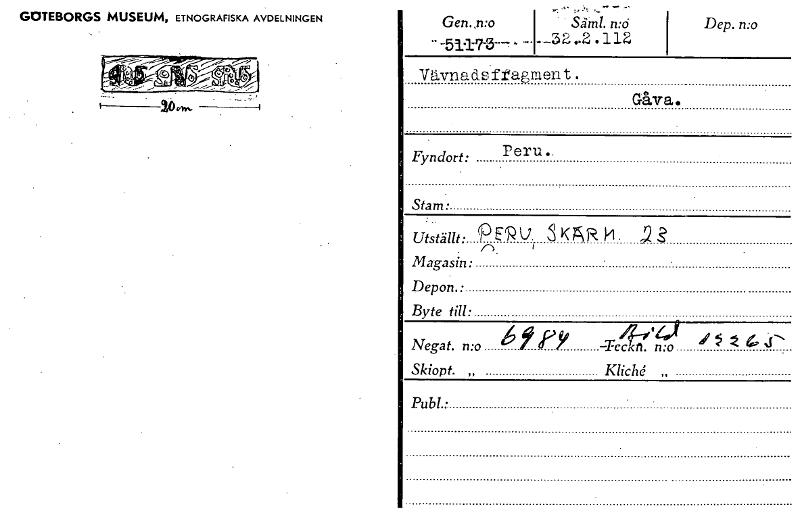 GÖTEBORGS MUSEUM, ETNOGRAFISKA AVDELNINGEN
20 cm
Gen. n:o Saml. n:o Dep. n:o
51173 32.2.112
Vävnadsfragment.
Gåva.
Fyndort: Peru.
Stam:
Utställt: PERU, SKÄRM. 23
Magasin:
Depon.:
Byte till:
Negat. n:o 6984 Teckn. n:o Bild
Skiopt. „ Kliché „
Publ.: